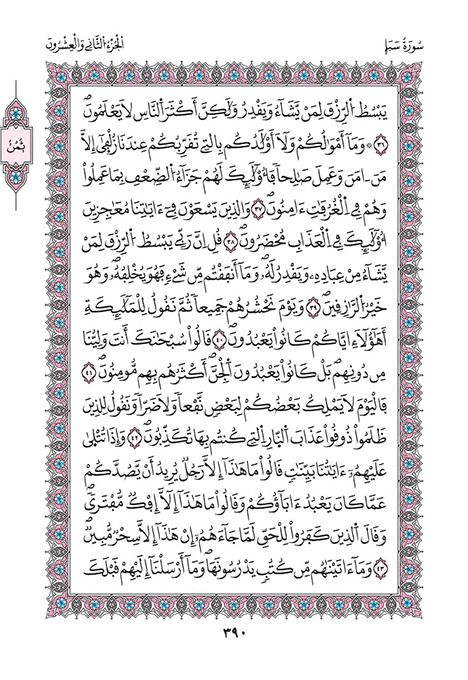 سُورَةُ سَبَإٍ
الْجُزْءُ الثَّانِي وَالْعِشْرُونَ
ثُمُنُ
يَبْسُطُ اُ۬لرِّزْقَ لِمَنْ يَّشَآءُ وَيَقْدِرُ وَلَٰكِنَّ أَكْثَرَ اَ۬لنَّاسِ لَا يَعْلَمُونَۖ
٣٦ وَمَآ أَمْوَٰلُكُمْ وَلَآ أَوْلَٰدُكُم بِالتِے تُقَرِّبُكُمْ عِندَنَا زُلْف۪ىٰٓ إِلَّا
مَنَ اٰمَنَ وَعَمِلَ صَٰلِحاٗ فَأُوْلَٰٓئِكَ لَهُمْ جَزَآءُ اُ۬لضِّعْفِ بِمَا عَمِلُواْ
وَهُمْ فِے اِ۬لْغُرُفَٰتِ ءَامِنُونَۖ ٣٧ وَالذِينَ يَسْعَوْنَ فِےٓ ءَايَٰتِنَا مُعَٰجِزِينَ
أُوْلَٰٓئِكَ فِے اِ۬لْعَذَابِ مُحْضَرُونَۖ ٣٨ قُلِ اِنَّ رَبِّے يَبْسُطُ اُ۬لرِّزْقَ لِمَنْ
يَّشَآءُ مِنْ عِبَادِهِۦ وَيَقْدِرُ لَهُۥۖ وَمَآ أَنفَقْتُم مِّن شَےْءٖ فَهُوَ يُخْلِفُهُۥۖ وَهُوَ
خَيْرُ اُ۬لرَّٰزِقِينَۖ ٣٩ وَيَوْمَ نَحْشُرُهُمْ جَمِيعاٗ ثُمَّ نَقُولُ لِلْمَلَٰٓئِكَةِ
أَهَٰٓؤُلَآءِ اِ۪يَّاكُمْ كَانُواْ يَعْبُدُونَۖ ٤٠ قَالُواْ سُبْحَٰنَكَ أَنتَ وَلِيُّنَا
مِن دُونِهِمۖ بَلْ كَانُواْ يَعْبُدُونَ اَ۬لْجِنَّۖ أَكْثَرُهُم بِهِم مُّومِنُونَۖ ٤١
فَالْيَوْمَ لَا يَمْلِكُ بَعْضُكُمْ لِبَعْضٖ نَّفْعاٗ وَلَا ضَرّاٗ وَنَقُولُ لِلذِينَ
ظَلَمُواْ ذُوقُواْ عَذَابَ اَ۬لنّ۪ارِ اِ۬لتِے كُنتُم بِهَا تُكَذِّبُونَۖ ٤٢ وَإِذَا تُتْل۪ىٰ
عَلَيْهِمُۥٓ ءَايَٰتُنَا بَيِّنَٰتٖ قَالُواْ مَا هَٰذَآ إِلَّا رَجُلٞ يُرِيدُ أَنْ يَّصُدَّكُمْ
عَمَّا كَانَ يَعْبُدُ ءَابَآؤُكُمْ وَقَالُواْ مَا هَٰذَآ إِلَّآ إِفْكٞ مُّفْتَر۪ىٗۖ
وَقَالَ اَ۬لذِينَ كَفَرُواْ لِلْحَقِّ لَمَّا جَآءَهُمُۥٓ إِنْ هَٰذَآ إِلَّا سِحْرٞ مُّبِينٞۖ
٤٣ وَمَآ ءَاتَيْنَٰهُم مِّن كُتُبٖ يَدْرُسُونَهَاۖ وَمَآ أَرْسَلْنَآ إِلَيْهِمْ قَبْلَكَ
٣٩٠